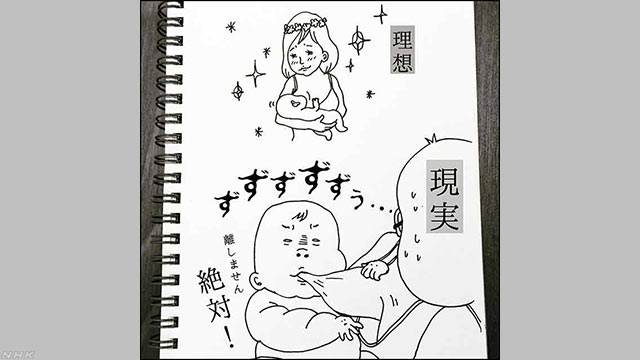 理想
現実
ずずずずずぅ...
離しません
絶対！
NHK